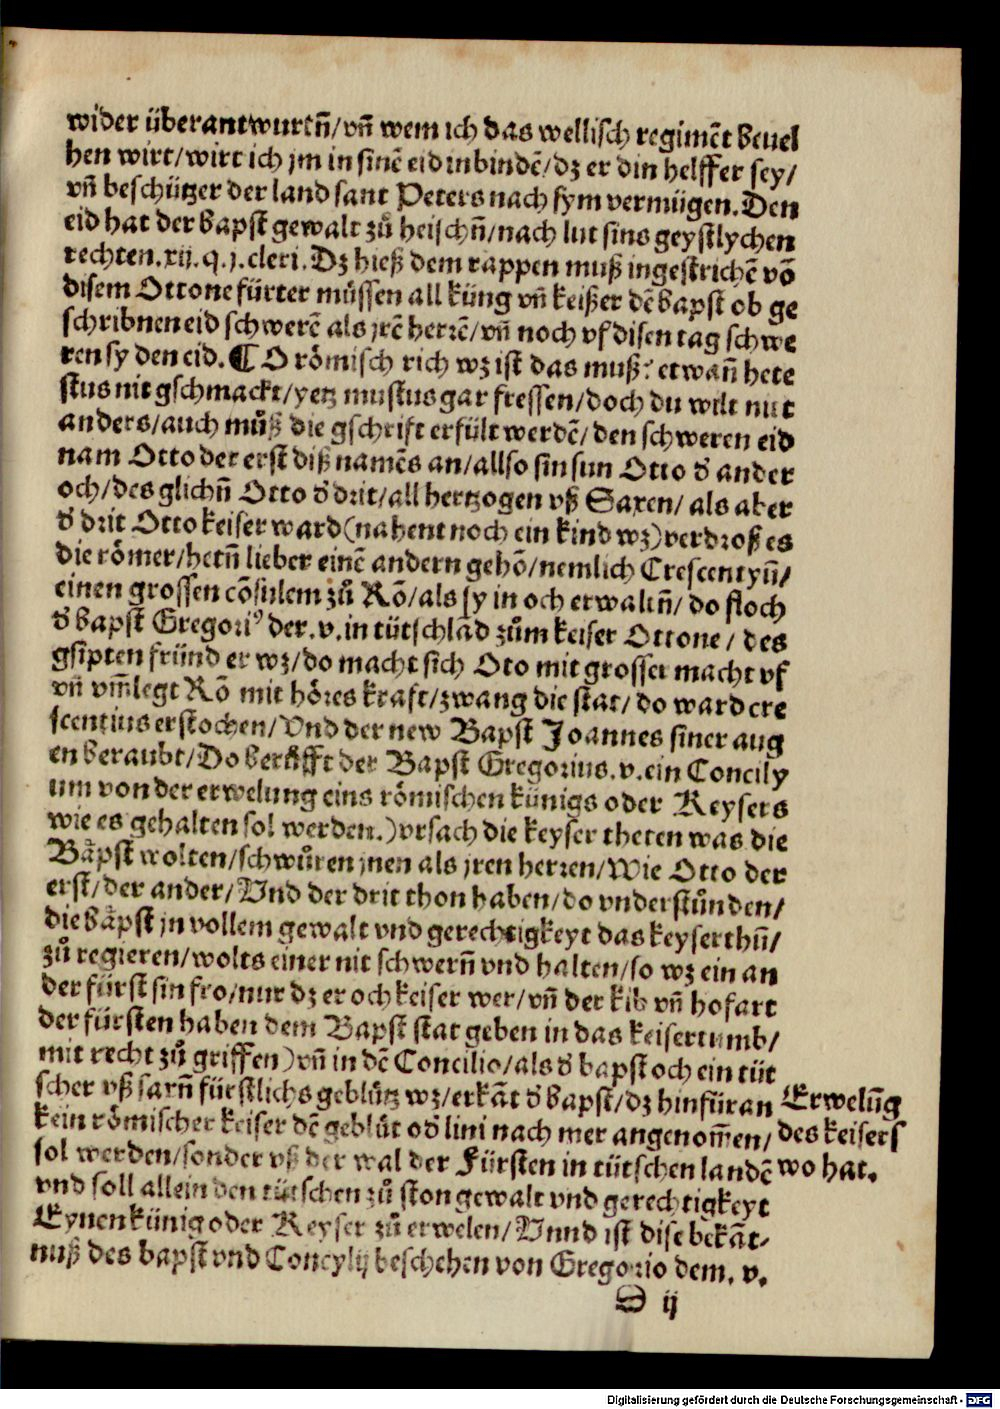 wider überantwurtñ/vñ wem ich das wellisch regimẽt beuel
hen wirt/wirt ich jm in sinẽ eid inbindẽ/dz er din helffer sey/
vñ beschützer der land sant Peters nach sym vermügen. Den
eid hat der bapst gewalt zů heischñ/nach lut sins geystlychen
rechten.xij.q.j.cleri. Dz hieß dem rappen muß ingestrichẽ võ
disem Ottone fürter müssen all küng vñ keißer dẽ bapst ob ge
schribnen eid schwerẽ als jrẽ herrẽ/vñ noch vf disen tag schwe
ren sy den eid. ¶ O römisch rich wz ist das muß? etwañ hete
stus nit gschmackt/yetz mustus gar fressen/doch du wilt nut
anders/auch můß die gschrift erfült werdẽ/den schweren eid
nam Otto der erst diß namẽs an/allso sin sun Otto d̕ ander
och/des glichñ Otto d̕ drit/all hertzogen vß Saxen/als aber
d̕ drit Otto keiser ward(nahent noch ein kind wz)verdroß es
die römer/hetñ lieber einẽ andern gehõ/nemlich Crescentyñ/
einen grossen cõsulem zů Rõ/als sy in och erwaltñ/do floch
d̕ bapst Gregoriꝰ der.v.in tütschlãd zům keiser Ottone/des
gsipten fründ er wz/do macht sich Oto mit grosser macht vf
vñ vm̃legt Rõ mit höres kraft/zwang die stat/do ward cre
scentius erstochen/Vnd der new Bapst Joannes siner aug
en beraubt/Do berůfft der Bapst Gregorius.v.ein Concily
um von der erwelung eins römischen künigs oder Keysers
wie es gehalten sol werden.)vrsach die keyser theten was die
Bäpst wolten/schwůren jnen als jren herren/Wie Otto der
erst/der ander/Vnd der drit thon haben/do vnderstůnden/
die bäpst jn vollem gewalt vnd gerechtigkeyt das keyserthũ/
zů regieren/wolts einer nit schwerñ vnd halten/so wz ein an
der fürst sin fro/nur dz er och keiser wer/vñ der kib vñ hofart
der fürsten haben dem Bapst stat geben in das keisertumb/
mit recht zů griffen)vñ in dẽ Concilio/als d̕ bapst och ein tüt
scher vß sarñ fürstlichs geblütz wz/erkãt d̕ bapst/dz hinfüran
kein römischer keiser dẽ geblüt od̕ lini nach mer angenom̃en/
sol werden/sonder vß der wal der Fürsten in tütschen landẽ
vnd soll allein den tütschen zů ston gewalt vnd gerechtigkeyt
Eynen künig oder Keyser zů erwelen/Vnnd ist dise bekãt-
nuß des bapst vnd Concylij beschehen von Gregorio dem.v.
D ij
Erwelũg
des keisers
wo hat.
Digitalisierung gefördert durch die Deutsche Forschungsgemeinschaft - DFG